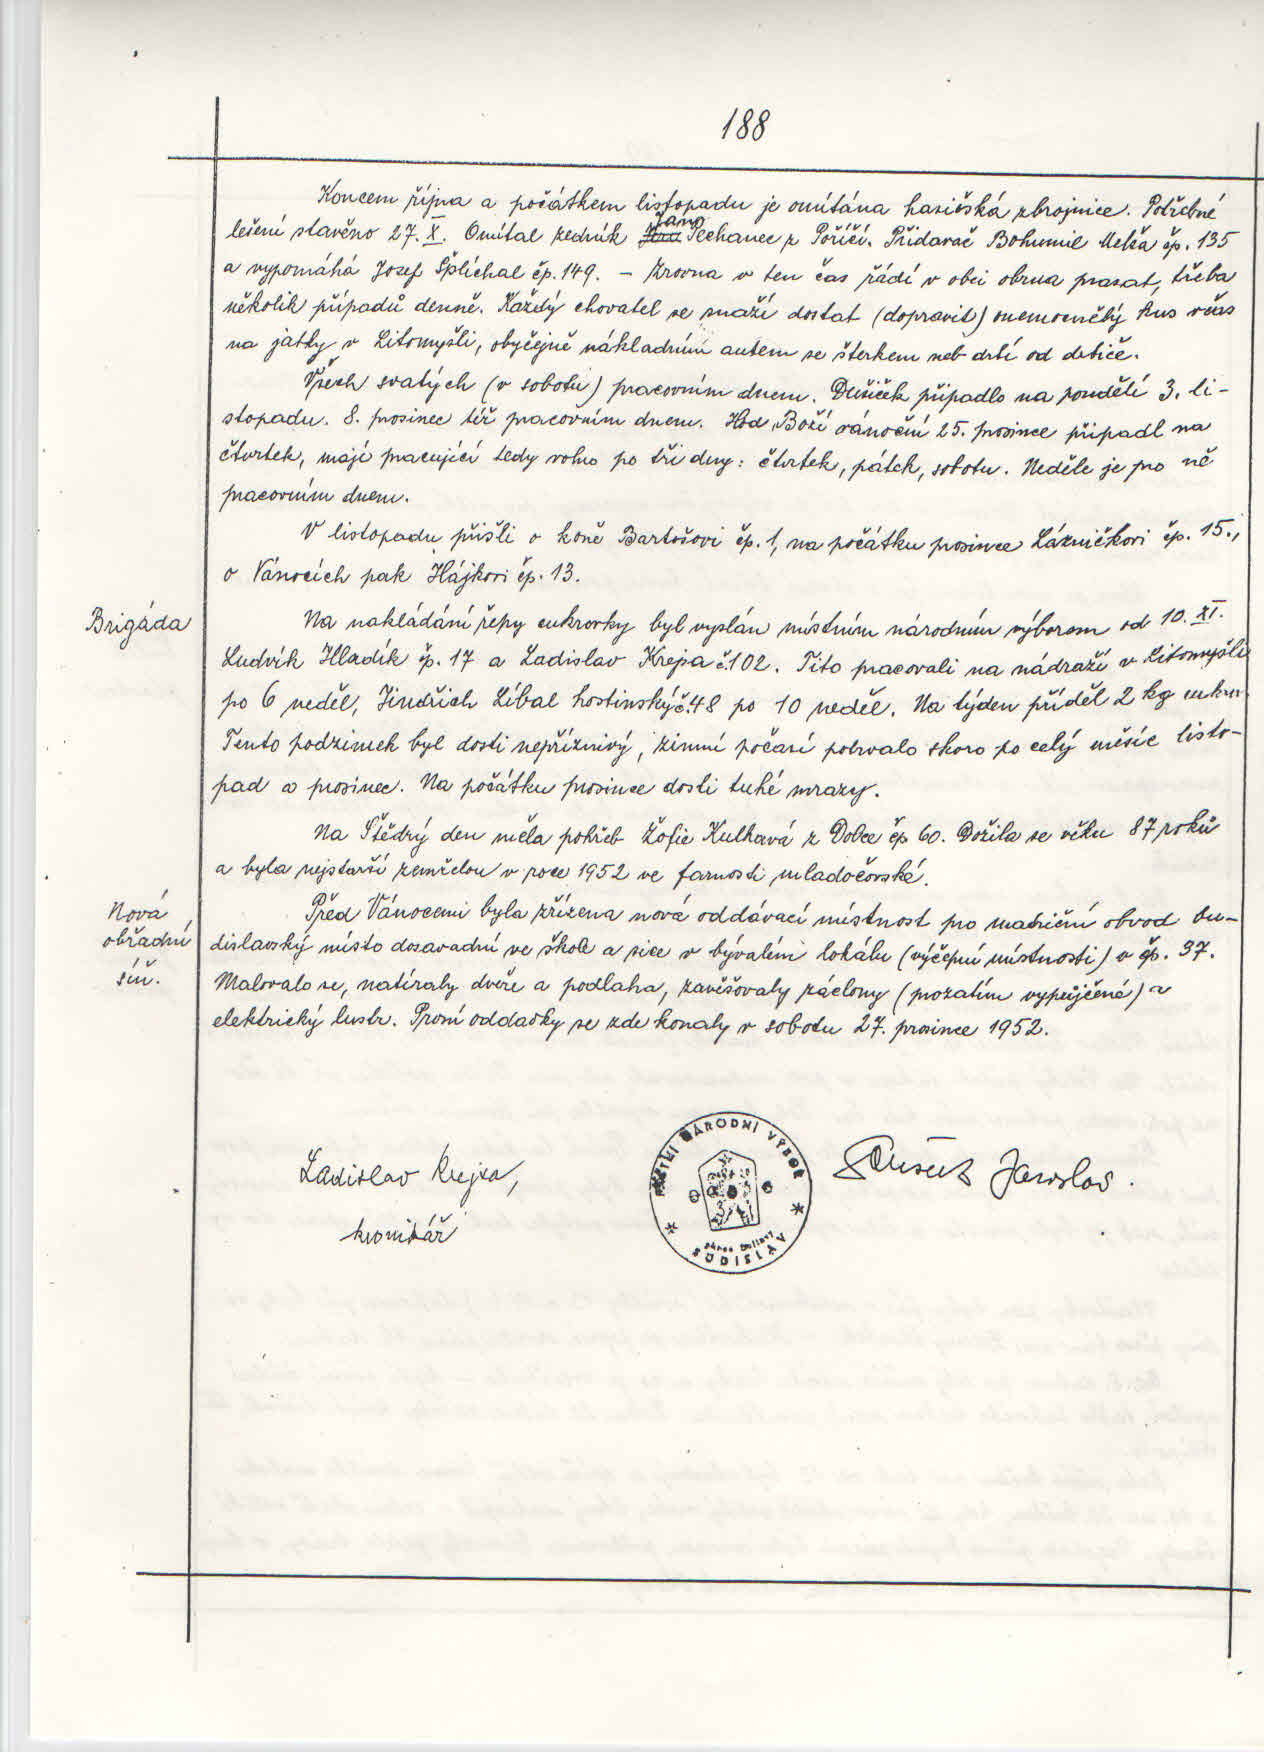 188
Koncem října a počátkem listopadu je omítána hasičská zbrojnice. Potřebné
lešení stavěno 27. X. Omítal zedník Jano Pechanec z Poříčí. Přidavač Bohumil Melša čp. 135
a vypomáhá Josef Šplíchal čp. 149. – Zrovna v ten čas řádí v obci obrna prasat, třeba
několik případů denně. Každý chovatel se snaží dostat (dopravit) onemocnělý kus včas
na jatky v Litomyšli, obyčejně nákladním autem se štěrkem neb drtí od drtiče.
Všech svatých (v sobotu) pracovním dnem. Dušiček připadlo na pondělí 3. li-
stopadu. 8. prosinec též pracovním dnem. Hod Boží vánoční 25. prosince připadl na
čtvrtek, mají pracující tedy volno po tři dny: čtvrtek, pátek, sobotu. Neděle je pro ně
pracovním dnem.
V listopadu přišli o koně Bartošovi čp. 1, na počátku prosince Lázničkovi čp. 15.,
o Vánocích pak Hájkovi čp. 13.
Brigáda
Na nakládání řepy cukrovky byl vyslán místním národním výborem od 10. XI.
Ludvík Hladík čp. 17 a Ladislav Krejsa č. 102. Tito pracovali na nádraží v Litomyšli
po 6 neděl, Jindřich Líbal hostinský č. 48 po 10 neděl. Na týden příděl 2 kg cukru.
Tento podzimek byl dosti nepříznivý, zimní počasí potrvalo skoro po celý měsíc listo-
pad a prosinec. Na počátku prosince dosti tuhé mrazy.
Na Štědrý den měla pohřeb Žofie Kulhavá z Dolce čp. 60. Dožila se věku 87 roků
a byla nejstarší zemřelou v roce 1952 ve farnosti mladočovské.
Nová
obřadní
síň.
Před Vánocemi byla zřízena nová oddávací místnost pro matriční obvod bu-
dislavský místo dosavadní ve škole a sice v bývalém lokálu (výčepní místnosti) v čp. 37.
Malovalo se, natíraly dveře a podlaha, zavěšovaly záclony (prozatím vypůjčené) a
elektrický lustr. První oddavky se zde konaly v sobotu 27. prosince 1952.
Ladislav Krejsa,
kronikář
MÍSTNÍ NÁRODNÍ VÝBOR
BUDISLAV
Jaroslav.